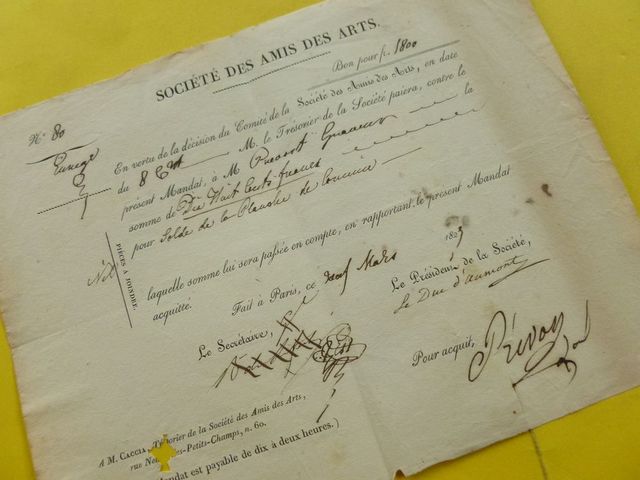 SOCIÉTÉ DES AMIS DES ARTS.
N° 80
Bon pour fr. 1800
En vertu de la décision du Comité de la Société des Amis des Arts, en date
du 8 M. le Trésorier de la Société paiera, contre le
présent Mandat, à M. Prevost Graveur la
somme de Dix Huit Cents francs
pour Solde de la Planche de
PIÈCES A JOINDRE.
laquelle somme lui sera passée en compte, en rapportant le présent Mandat
acquitté.
Fait à Paris, ce neuf Mars 1823
Le Secrétaire,
Le Président de la Société,
Le Duc d'Aumont
Pour acquit,
Prévost
A M. CACCIA, Trésorier de la Société des Amis des Arts,
rue Neuve-des-Petits-Champs, n. 60.
Mandat est payable de dix à deux heures.)